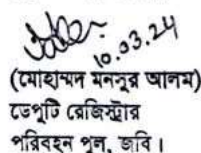 10.03.24
(মোহাম্মদ মনসুর আলম)
ডেপুটি রেজিস্ট্রার
পরিবহন পুল, জবি।